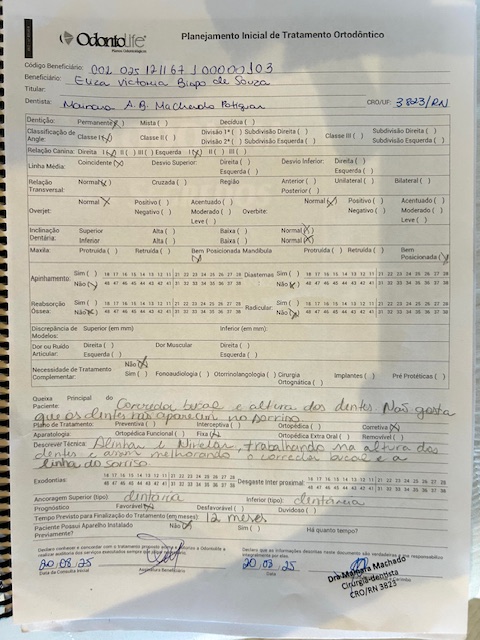 OdontoLife
Planos Odontológicos
Planejamento Inicial de Tratamento Ortodôntico
Código Beneficiário: 001 025 121167 100000103
Beneficiário: Elica Victoria Bispo de Souza
Titular:
Dentista: Mainara A. B. Machado Potiguar CRO/UF: 3823/RN
Dentição: Permanente (X) Mista ( ) Decídua ( )
Classificação de Angle: Classe I (X) Classe II ( ) Divisão 1ª ( ) Subdivisão Direita ( ) Classe III ( ) Subdivisão Direita ( )
Divisão 2ª ( ) Subdivisão Esquerda ( ) Subdivisão Esquerda ( )
Relação Canina: Direita I (X) II ( ) III ( ) Esquerda I (X) II ( ) III ( )
Linha Média: Coincidente (X) Desvio Superior: Direita ( ) Desvio Inferior: Direita ( )
Esquerda ( ) Esquerda ( )
Relação Transversal: Normal (X) Cruzada ( ) Região Anterior ( ) Unilateral ( ) Bilateral ( )
Posterior ( )
Overjet: Normal (X) Positivo ( ) Acentuado ( ) Overbite Normal (X) Positivo ( ) Acentuado ( )
Negativo ( ) Moderado ( ) Negativo ( ) Moderado ( )
Leve ( ) Leve ( )
Inclinação Dentária: Superior Alta ( ) Baixa ( ) Normal (X)
Inferior Alta ( ) Baixa ( ) Normal (X)
Maxila Protruída ( ) Retruída ( ) Bem Posicionada (X) Mandíbula Protruída ( ) Retruída ( ) Bem Posicionada (X)
Apinhamento: Sim ( ) 18 17 16 15 14 13 12 11 21 22 23 24 25 26 27 28 Diastemas Sim ( ) 18 17 16 15 14 13 12 11 21 22 23 24 25 26 27 28
Não (X) 48 47 46 45 44 43 42 41 31 32 33 34 35 36 37 38 Não (X) 48 47 46 45 44 43 42 41 31 32 33 34 35 36 37 38
Reabsorção Óssea: Sim ( ) 18 17 16 15 14 13 12 11 21 22 23 24 25 26 27 28 Radicular Sim ( ) 18 17 16 15 14 13 12 11 21 22 23 24 25 26 27 28
Não (X) 48 47 46 45 44 43 42 41 31 32 33 34 35 36 37 38 Não (X) 48 47 46 45 44 43 42 41 31 32 33 34 35 36 37 38
Discrepância de Modelos: Superior (em mm) Inferior (em mm)
Dor ou Ruído Articular: Direita ( ) Dor Muscular Direita ( )
Esquerda ( ) Esquerda ( )
Necessidade de Tratamento Complementar: Não (X)
Sim ( ) Fonoaudiologia ( ) Otorrinolangologia ( ) Cirurgia Ortognática ( ) Implantes ( ) Pré Protéticas ( )
Queixa Principal do Paciente: Corredor bucal e altura dos dentes. Não gosta
que os dentes não aparecem no sorriso
Plano de Tratamento: Preventiva ( ) Interceptiva ( ) Ortopédica ( ) Corretiva (X)
Aparatologia Ortopédica Funcional ( ) Fixa (X) Ortopédica Extra Oral ( ) Removível ( )
Descrever Técnica: Alinhar e Nivelar, trabalhando na altura dos
dentes e assim melhorando o corredor bucal e a
linha do sorriso.
Exodontias: 18 17 16 15 14 13 12 11 21 22 23 24 25 26 27 28 Desgaste Inter proximal: 18 17 16 15 14 13 12 11 21 22 23 24 25 26 27 28
48 47 46 45 44 43 42 41 31 32 33 34 35 36 37 38 48 47 46 45 44 43 42 41 31 32 33 34 35 36 37 38
Ancoragem Superior (tipo): dentária Inferior (tipo): dentária
Prognóstico Favorável (X) Desfavorável ( ) Duvidoso ( )
Tempo Previsto para Finalização do Tratamento (em meses) 12 meses
Paciente Possui Aparelho Instalado Previamente? Não (X) Sim ( ) Há quanto tempo?
20.08.25 20.08.25
Data da Consulta Inicial Assinatura Beneficiário Data
Dra Mainara Machado
Cirurgiã-dentista
CRO/RN 3823